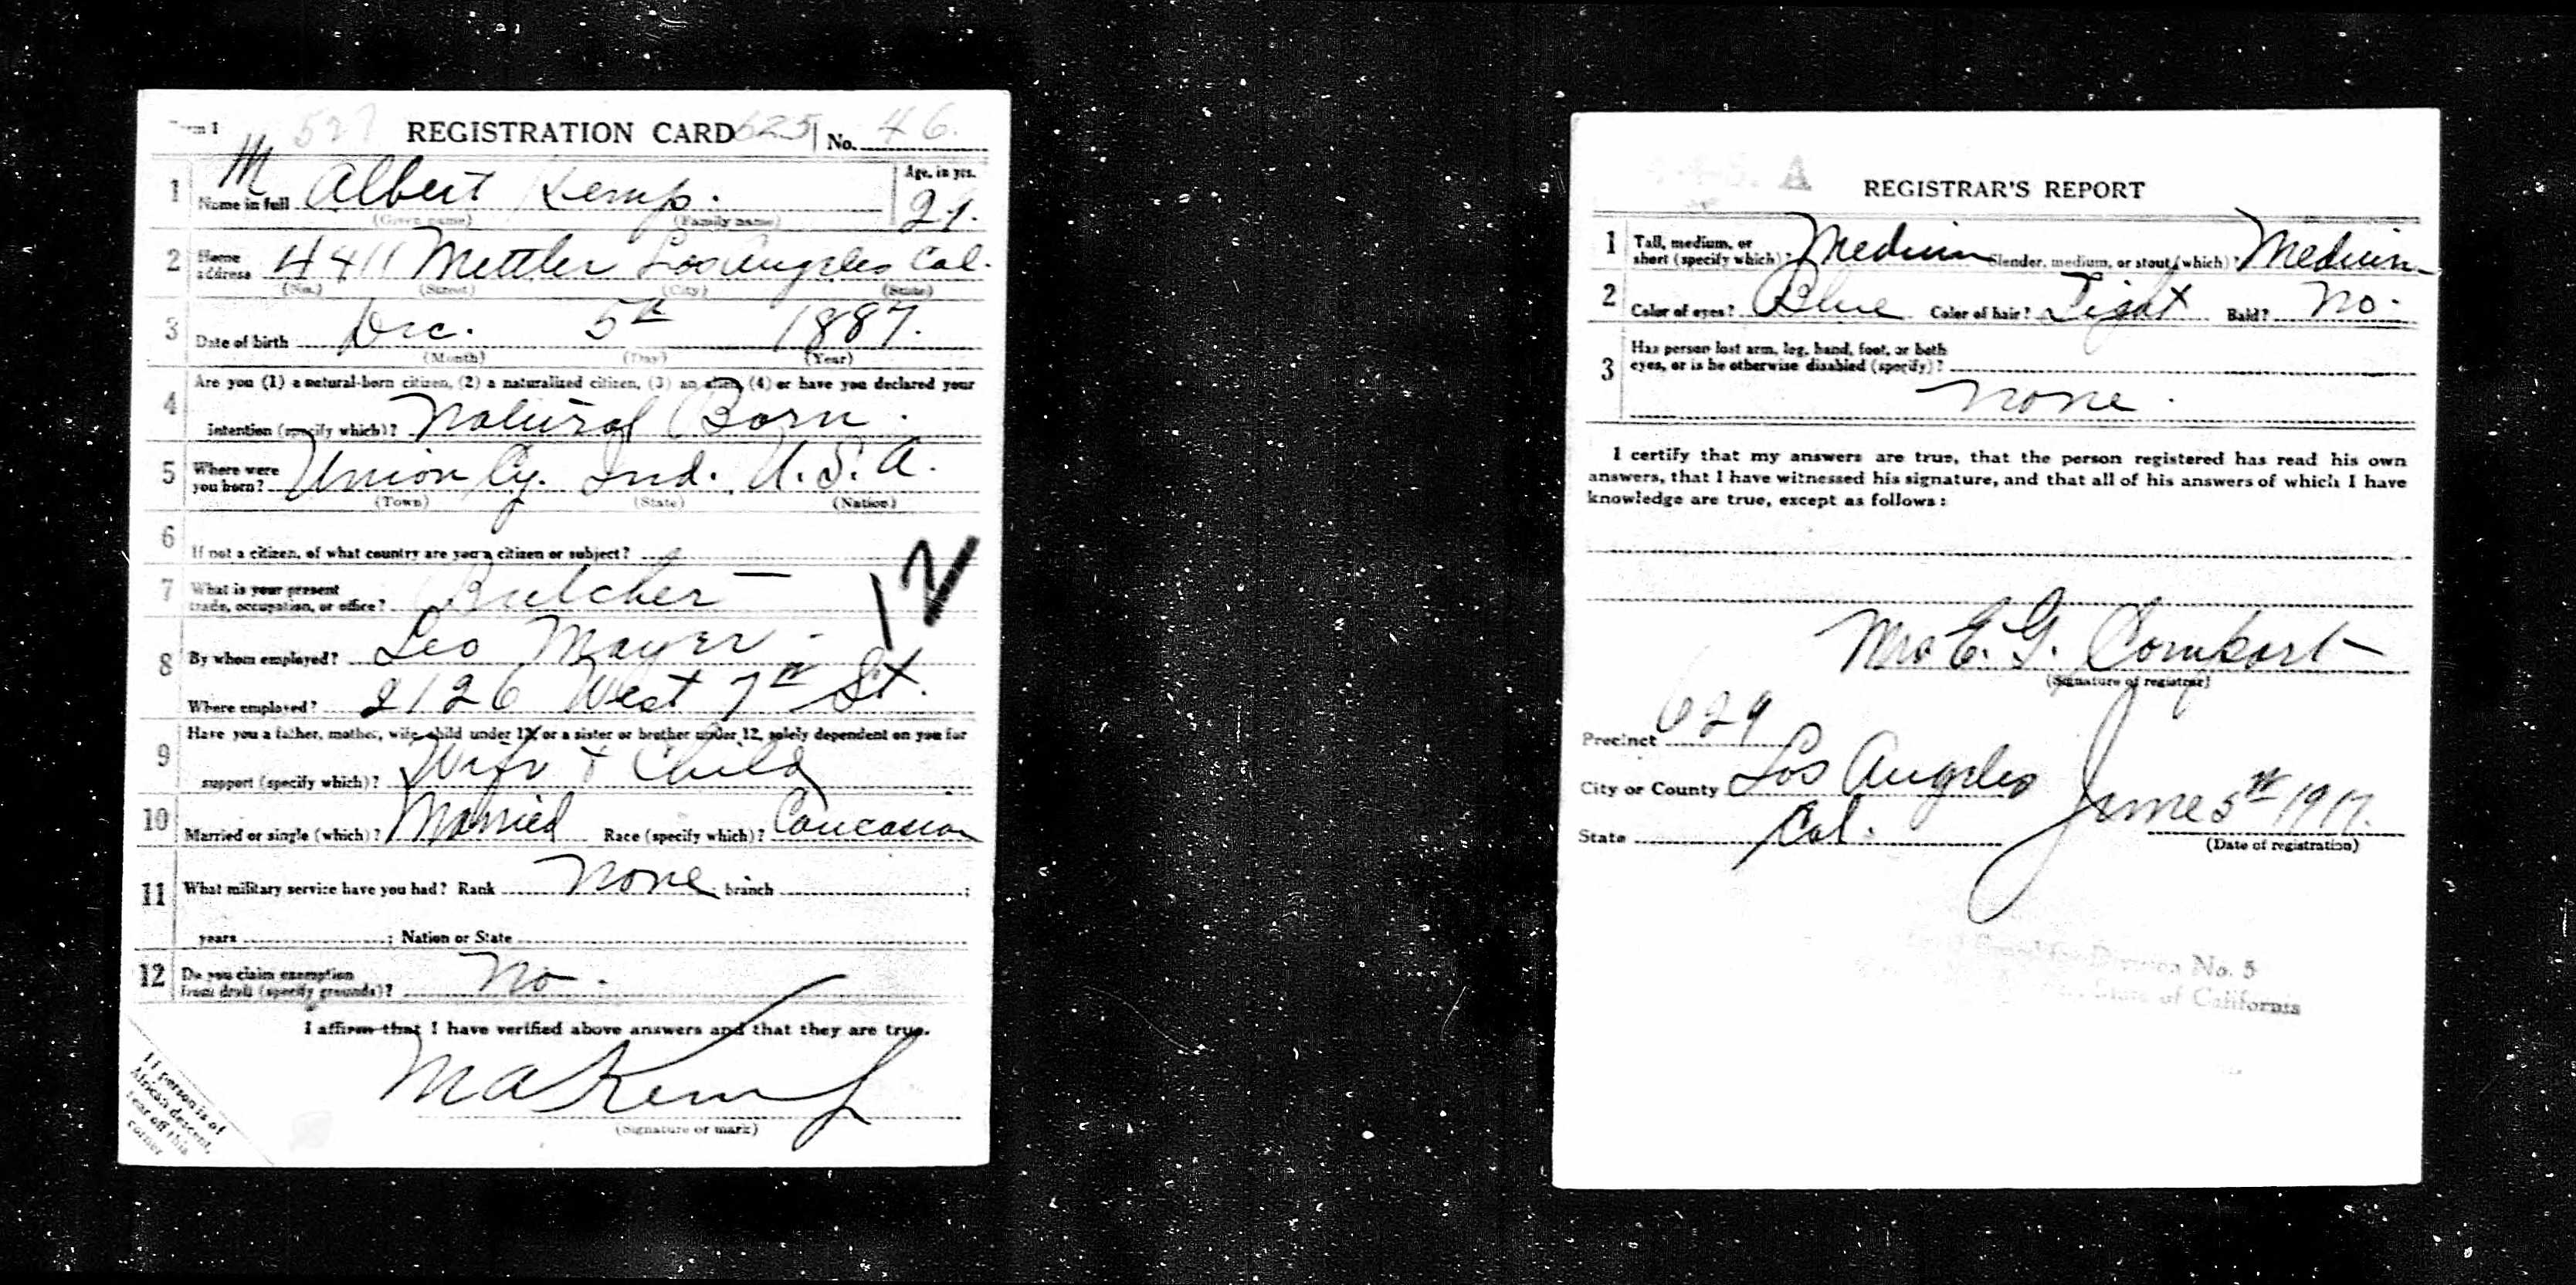 REGISTRATION CARD 625 No. 46.
1 Name in full M Albert Kemp. Age, in yrs. 29.
(Given name) (Family name)
2 Home address 4411 Mettler Los Angeles Cal.
(No.) (Street) (City) (State)
3 Date of birth Dec. 5th 1887.
(Month) (Day) (Year)
Are you (1) a natural-born citizen, (2) a naturalized citizen, (3) an alien, (4) or have you declared your
4 intention (specify which)? Natural Born.
5 Where were you born? Union Cy. Ind. U.S.A.
(Town) (State) (Nation)
6 If not a citizen, of what country are you a citizen or subject?
7 What is your present trade, occupation, or office? Butcher
12
8 By whom employed? Leo Mayer
Where employed? 2126 West 7th St.
9 Have you a father, mother, wife, child under 12, or a sister or brother under 12, solely dependent on you for
support (specify which)? Wife + Child
10 Married or single (which)? Married Race (specify which)? Caucasian
11 What military service have you had? Rank None; branch ;
years ; Nation or State
12 Do you claim exemption from draft (specify grounds)? No.
I affirm that I have verified above answers and that they are true.
M A Kemp
(Signature or mark)
If person is of
African descent,
tear off this
corner
A
REGISTRAR'S REPORT
1 Tall, medium, or short (specify which)? Medium Slender, medium, or stout (which)? Medium
2 Color of eyes? Blue Color of hair? Light Bald? No.
3 Has person lost arm, leg, hand, foot, or both
eyes, or is he otherwise disabled (specify)?
None.
I certify that my answers are true, that the person registered has read his own
answers, that I have witnessed his signature, and that all of his answers of which I have
knowledge are true, except as follows:
Mrs E. G.
(Signature of registrar)
Precinct 629
City or County Los Angeles
State Cal. June 5th 1917.
(Date of registration)
Division No. 5
State of California